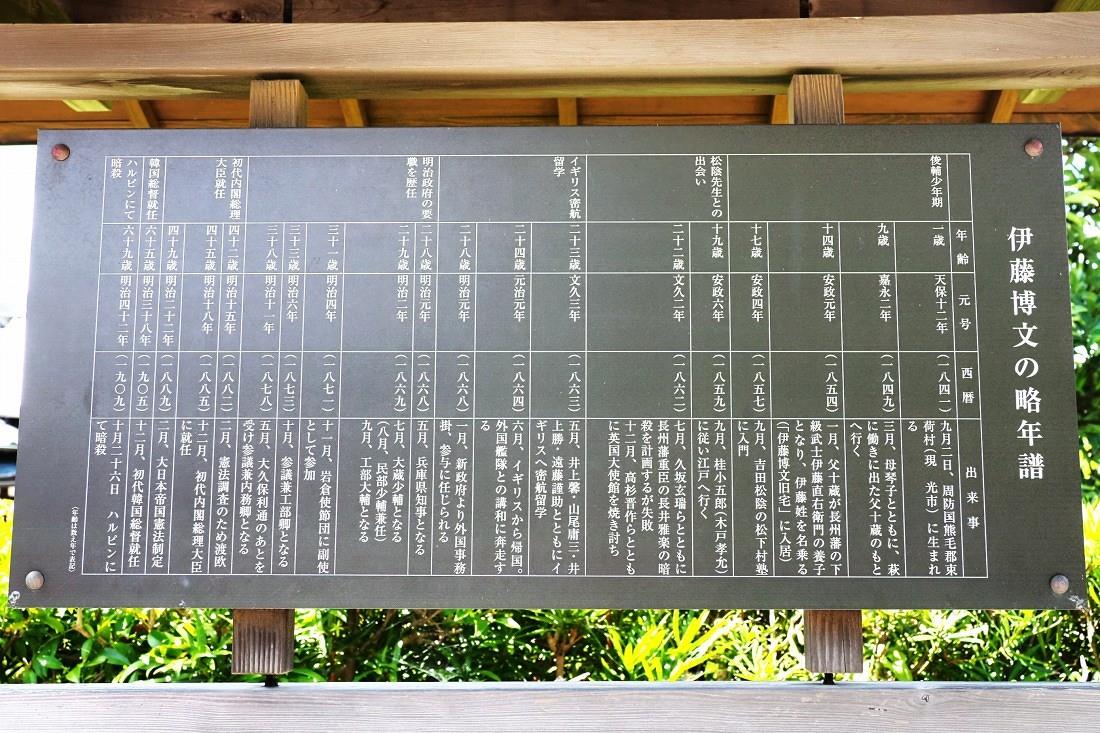 伊藤博文の略年譜
年齢
元号
西暦
出来事
俊輔少年期
一歳
天保十二年
(一八四一)
九月二日、周防国熊毛郡束
荷村(現 光市)に生まれ
る
九歳
嘉永二年
(一八四九)
三月、母琴子とともに、萩
に働きに出た父十蔵のもと
へ行く
十四歳
安政元年
(一八五四)
一月、父十蔵が長州藩の下
級武士伊藤直右衛門の養子
となり、伊藤姓を名乗る
(「伊藤博文旧宅」に入居)
十七歳
安政四年
(一八五七)
九月、吉田松陰の松下村塾
に入門
松陰先生との
出会い
十九歳
安政六年
(一八五九)
九月、桂小五郎(木戸孝允)
に従い江戸へ行く
二十二歳
文久二年
(一八六二)
七月、久坂玄瑞らとともに
長州藩重臣の長井雅楽の暗
殺を計画するが失敗
十二月、高杉晋作らととも
に英国大使館を焼き討ち
イギリス密航
留学
二十三歳
文久三年
(一八六三)
五月、井上馨・山尾庸三・井
上勝・遠藤謹助とともにイ
ギリスへ密航留学
二十四歳
元治元年
(一八六四)
六月、イギリスから帰国。
外国艦隊との講和に奔走す
る
二十八歳
明治元年
(一八六八)
一月、新政府より外国事務
掛、参与に任じられる
明治政府の要
職を歴任
二十八歳
明治元年
(一八六八)
五月、兵庫県知事となる
二十九歳
明治二年
(一八六九)
七月、大蔵少輔となる
(八月、民部少輔兼任)
九月、工部大輔となる
三十一歳
明治四年
(一八七一)
十一月、岩倉使節団に副使
として参加
三十三歳
明治六年
(一八七三)
十月、参議兼工部卿となる
三十八歳
明治十一年
(一八七八)
五月、大久保利通のあとを
受け参議兼内務卿となる
初代内閣総理
大臣就任
四十二歳
明治十五年
(一八八二)
二月、憲法調査のため渡欧
四十五歳
明治十八年
(一八八五)
十二月、初代内閣総理大臣
に就任
四十九歳
明治二十二年
(一八八九)
二月、大日本帝国憲法制定
韓国総督就任
六十五歳
明治三十八年
(一九〇五)
十二月、初代韓国総督就任
ハルビンにて
暗殺
六十九歳
明治四十二年
(一九〇九)
十月二十六日 ハルビンに
て暗殺
(年齢は数え年で表記)